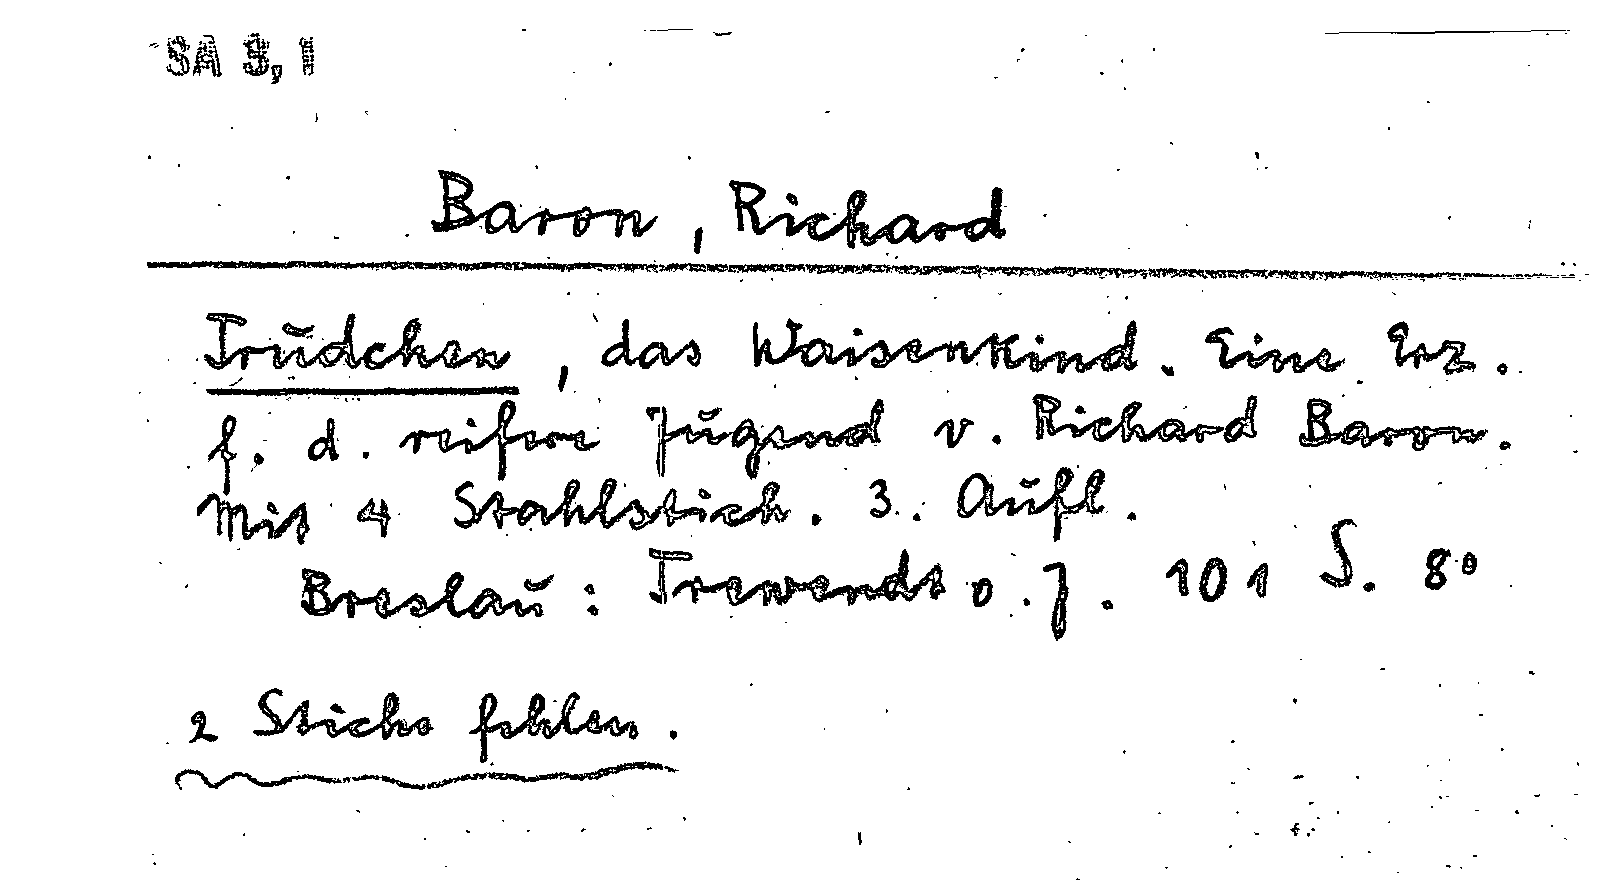 SA 3, 1
Baron, Richard
Trudchen, das Waisenkind. Eine Erz.
f. d. reifere Jugend v. Richard Baron.
Mit 4 Stahlstich. 3. Aufl.
Breslau: Trewendt o. J. 101 S. 8°
2 Stiche fehlen.